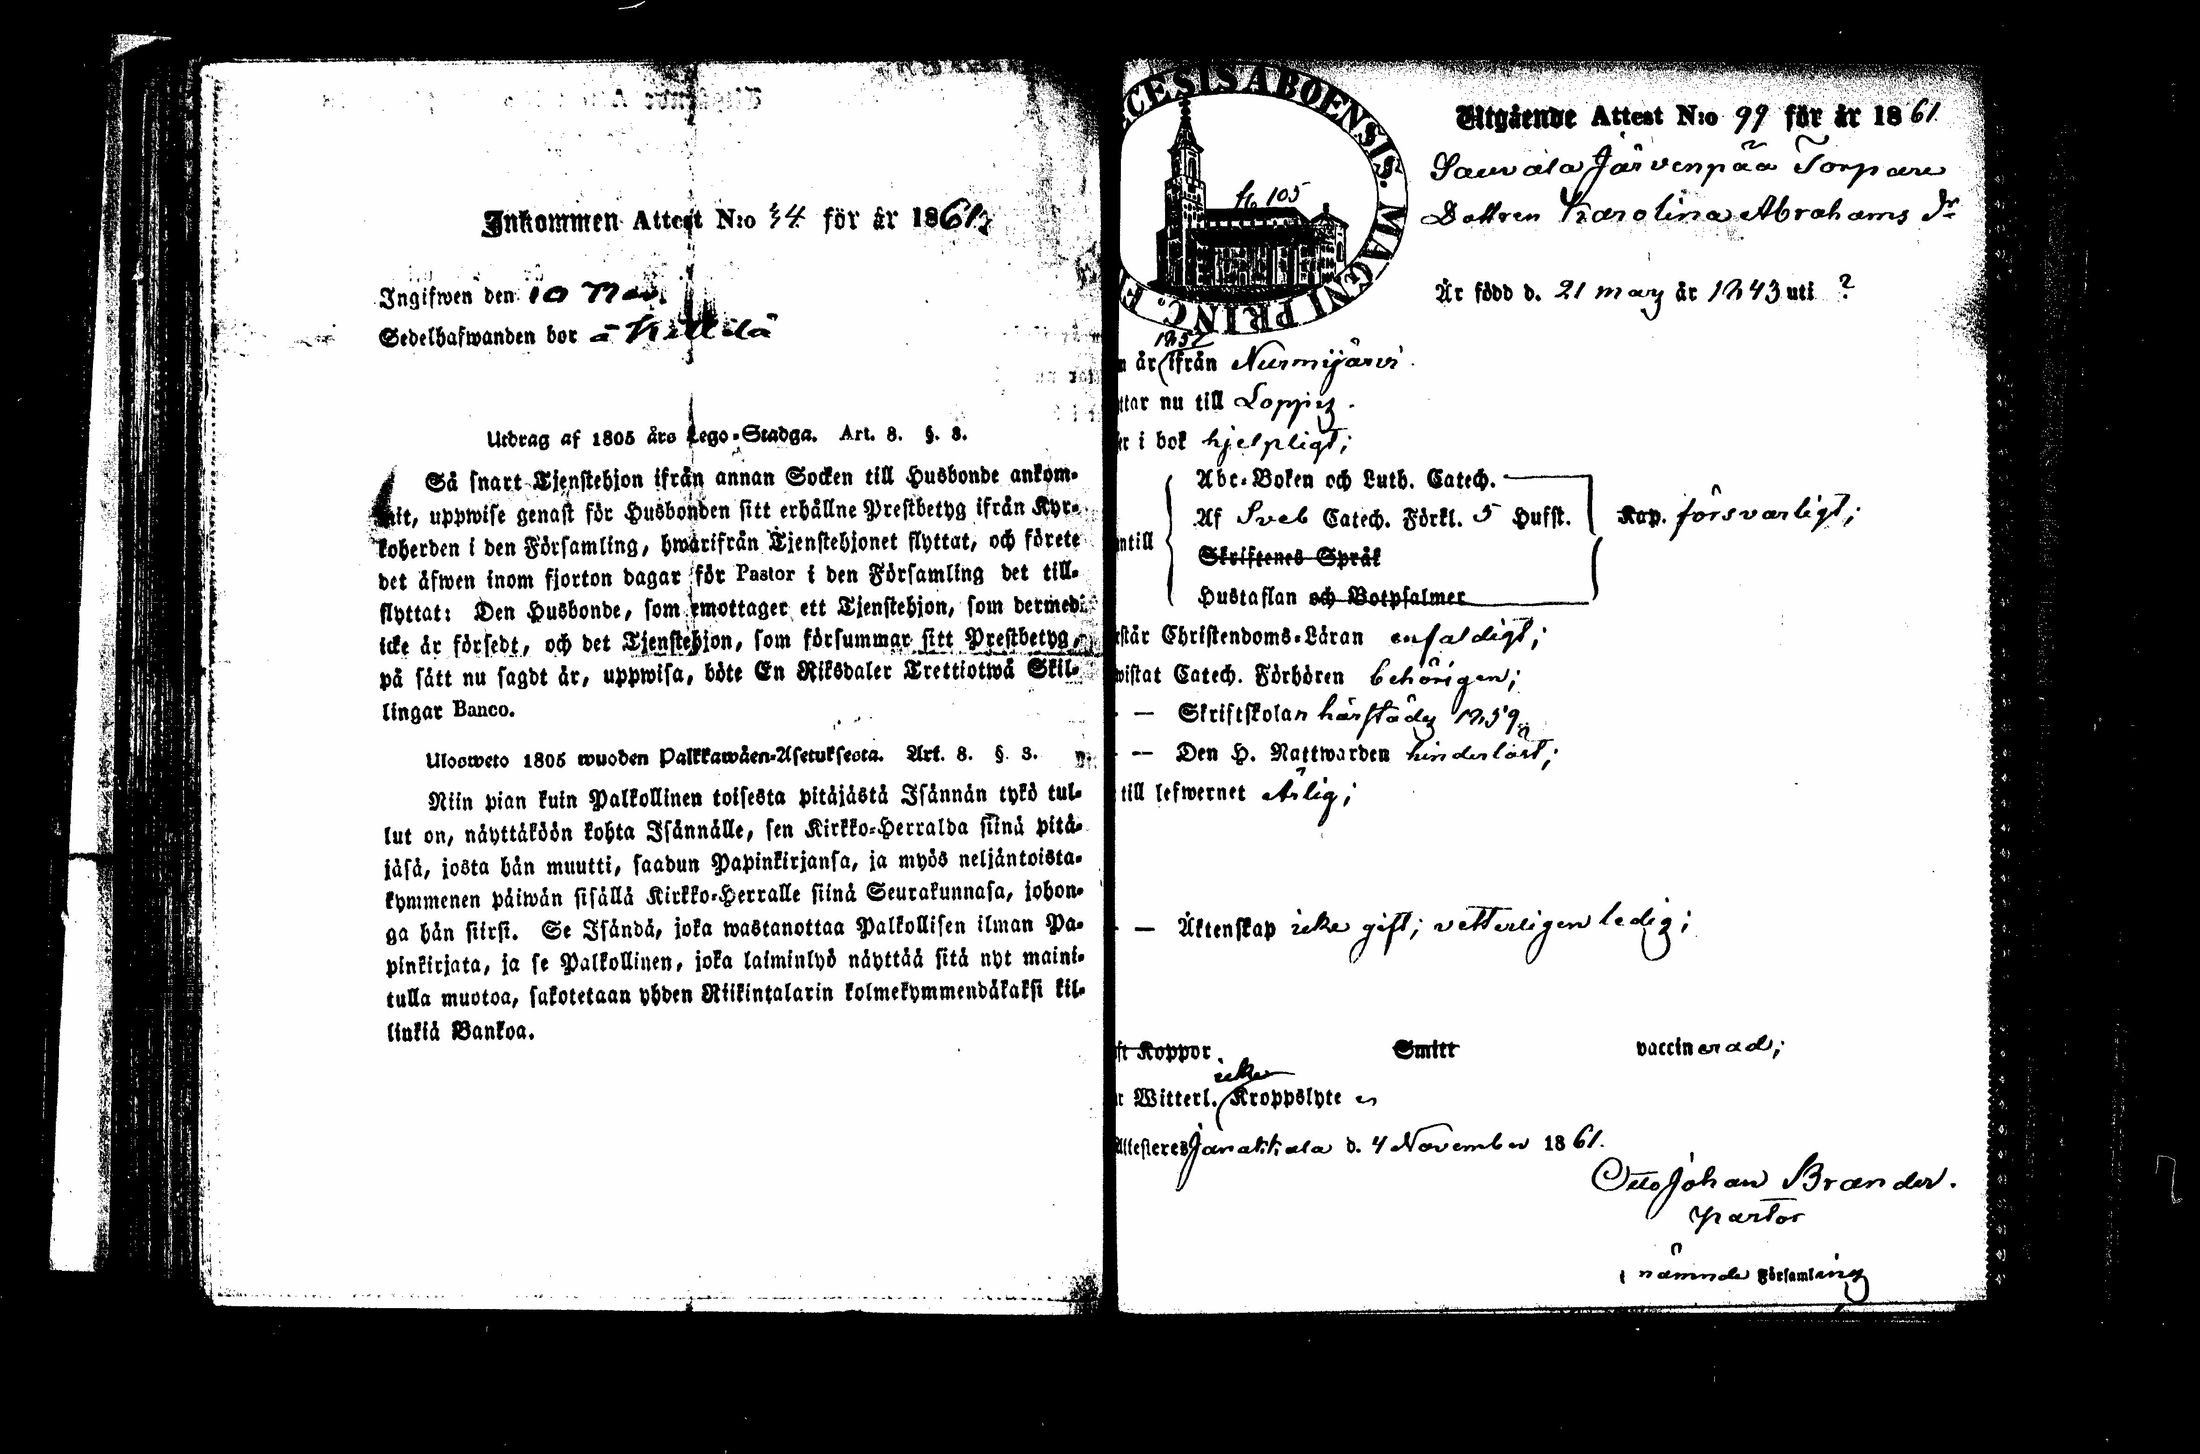 Inkommen Attest N:o 34 för år 1861,
Ingifwen den 10 Nov.
Sedelhafwanden bor å
Utdrag af 1805 års Lego-Stadga. Art. 8. §. 3.
Så snart Tjenstehjon ifrån annan Socken till Husbonde ankom-
mit, uppwise genast för Husbonden sitt erhållne Prestbetyg ifrån Kyr-
koherden i den Församling, hwarifrån Tjenstehjonet flyttat, och förete
det äfwen inom fjorton dagar för Pastor i den Församling det till-
flyttat: Den Husbonde, som emottager ett Tjenstehjon, som dermed
icke är försedt, och det Tjenstehjon, som försummar sitt Prestbetyg,
på sätt nu sagdt är, uppwisa, böte En Riksdaler Trettiotwå Skil-
lingar Banco.
Ulosweto 1805 wuoden Palkkawäen-Asetuksesta. Art. 8. §. 3.
Niin pian kuin Palkollinen toisesta pitäjästä Isännän tykö tul-
lut on, näyttäköön kohta Isännälle, sen Kirkko-Herralda siinä pitä-
jäsä, josta hän muutti, saadun Papinkirjansa, ja myös neljäntoista-
kymmenen päiwän sisällä Kirkko-Herralle siinä Seurakunnasa, johon-
ga hän siirsi. Se Isändä, joka wastanottaa Palkollisen ilman Pa-
pinkirjata, ja se Palkollinen, joka laiminlyö näyttää sitä nyt maini-
tulla muotoa, sakotetaan yhden Riikintalarin kolmekymmendäkaksi kil-
linkiä Bankoa.
CESIS ABOENSIS. MAGNI PRINC. F
105
Utgående Attest N:o 99 för år 1861.
Sauvala Järvenpää Torpare
Dottren Karolina Abrahams dr
Är född d. 21 maj år 1843 uti ?
1857
år ifrån Nurmijärvi.
ttar nu till Loppis.
i bok hjelpligt;
Abc-Boken och Luth. Catech.
Af Sveb Catech. Förkl. 5 Hufst. Kap. försvarligt;
ntill
Skriftenes Språk
Hustaflan och Botpsalmer
står Christendoms-Läran enfaldigt;
wistat Catech. Förhören behörigen;
— Skriftskolan härstädes 1859
— Den H. Nattwarden hinderlöst;
till lefwernet Ärlig;
— Äktenskap icke gift; vetterligen ledig;
ft Koppor Smitt vaccinerad;
icke
r Witterl. Kroppslyte
Attesteres Janakkala d. 4 November 1861.
Otto Johan Brander.
pastor
i nämnde Församling